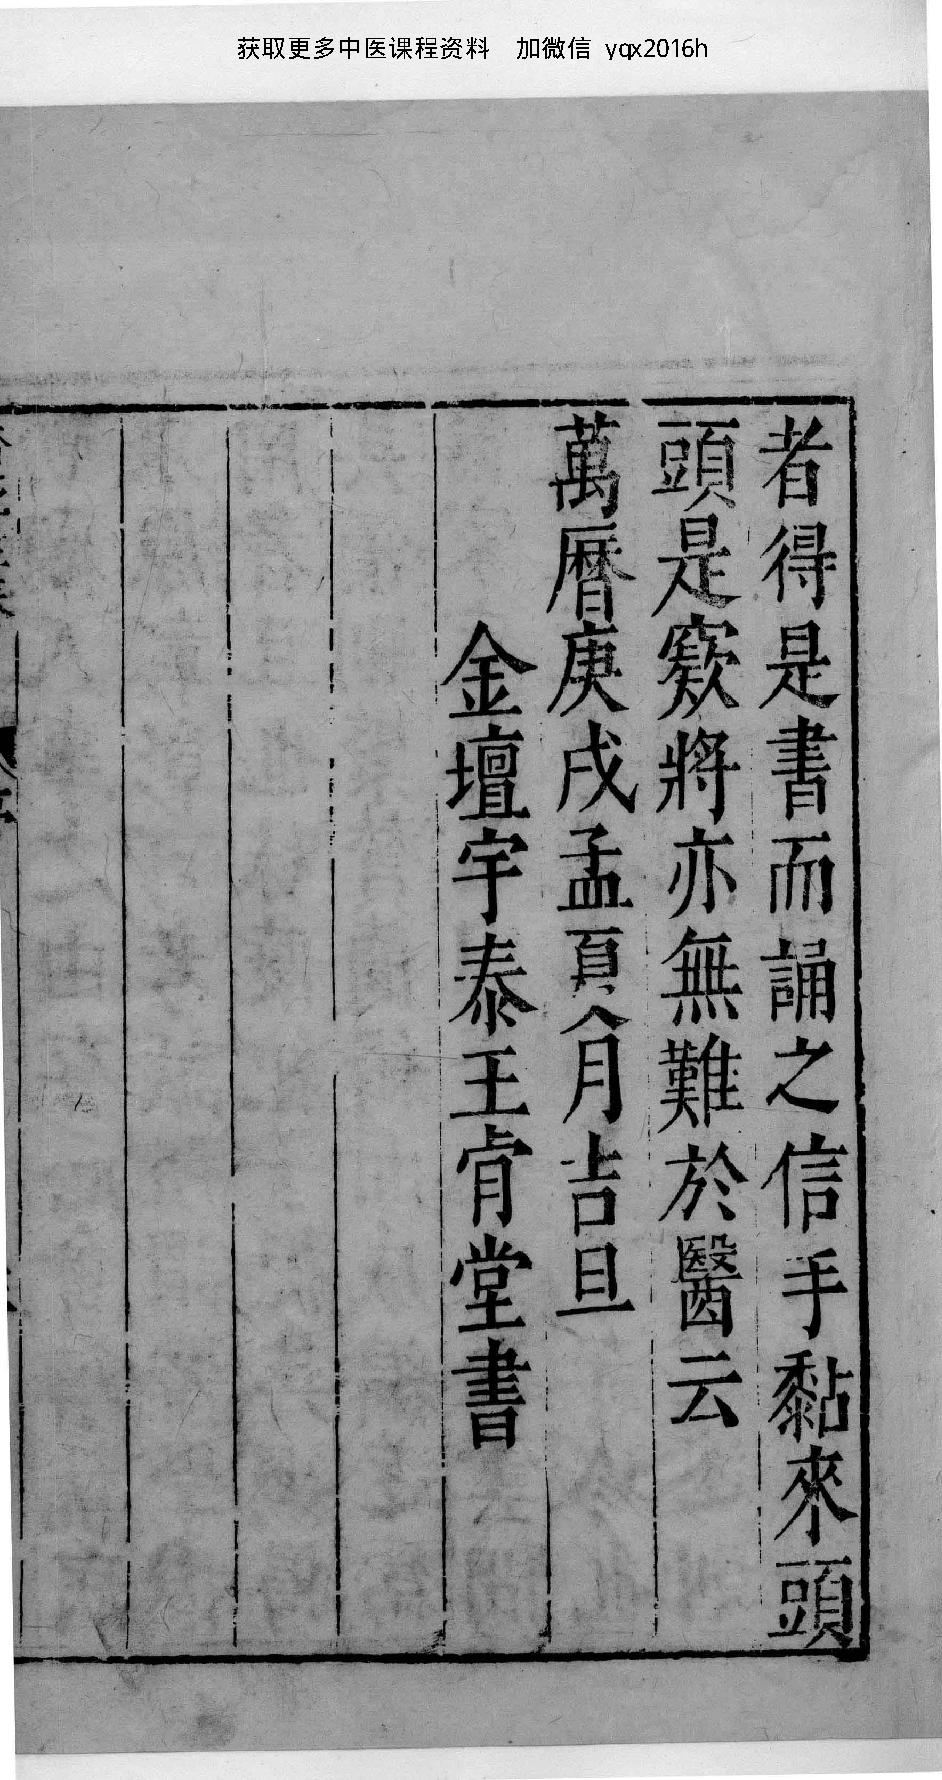 获取更多中医课程资料 加微信 yqx2016h
者得是書而誦之信手黏來頭
頭是窾將亦無難於醫云
萬曆庚戌孟夏月吉旦
金壇宇泰王肯堂書